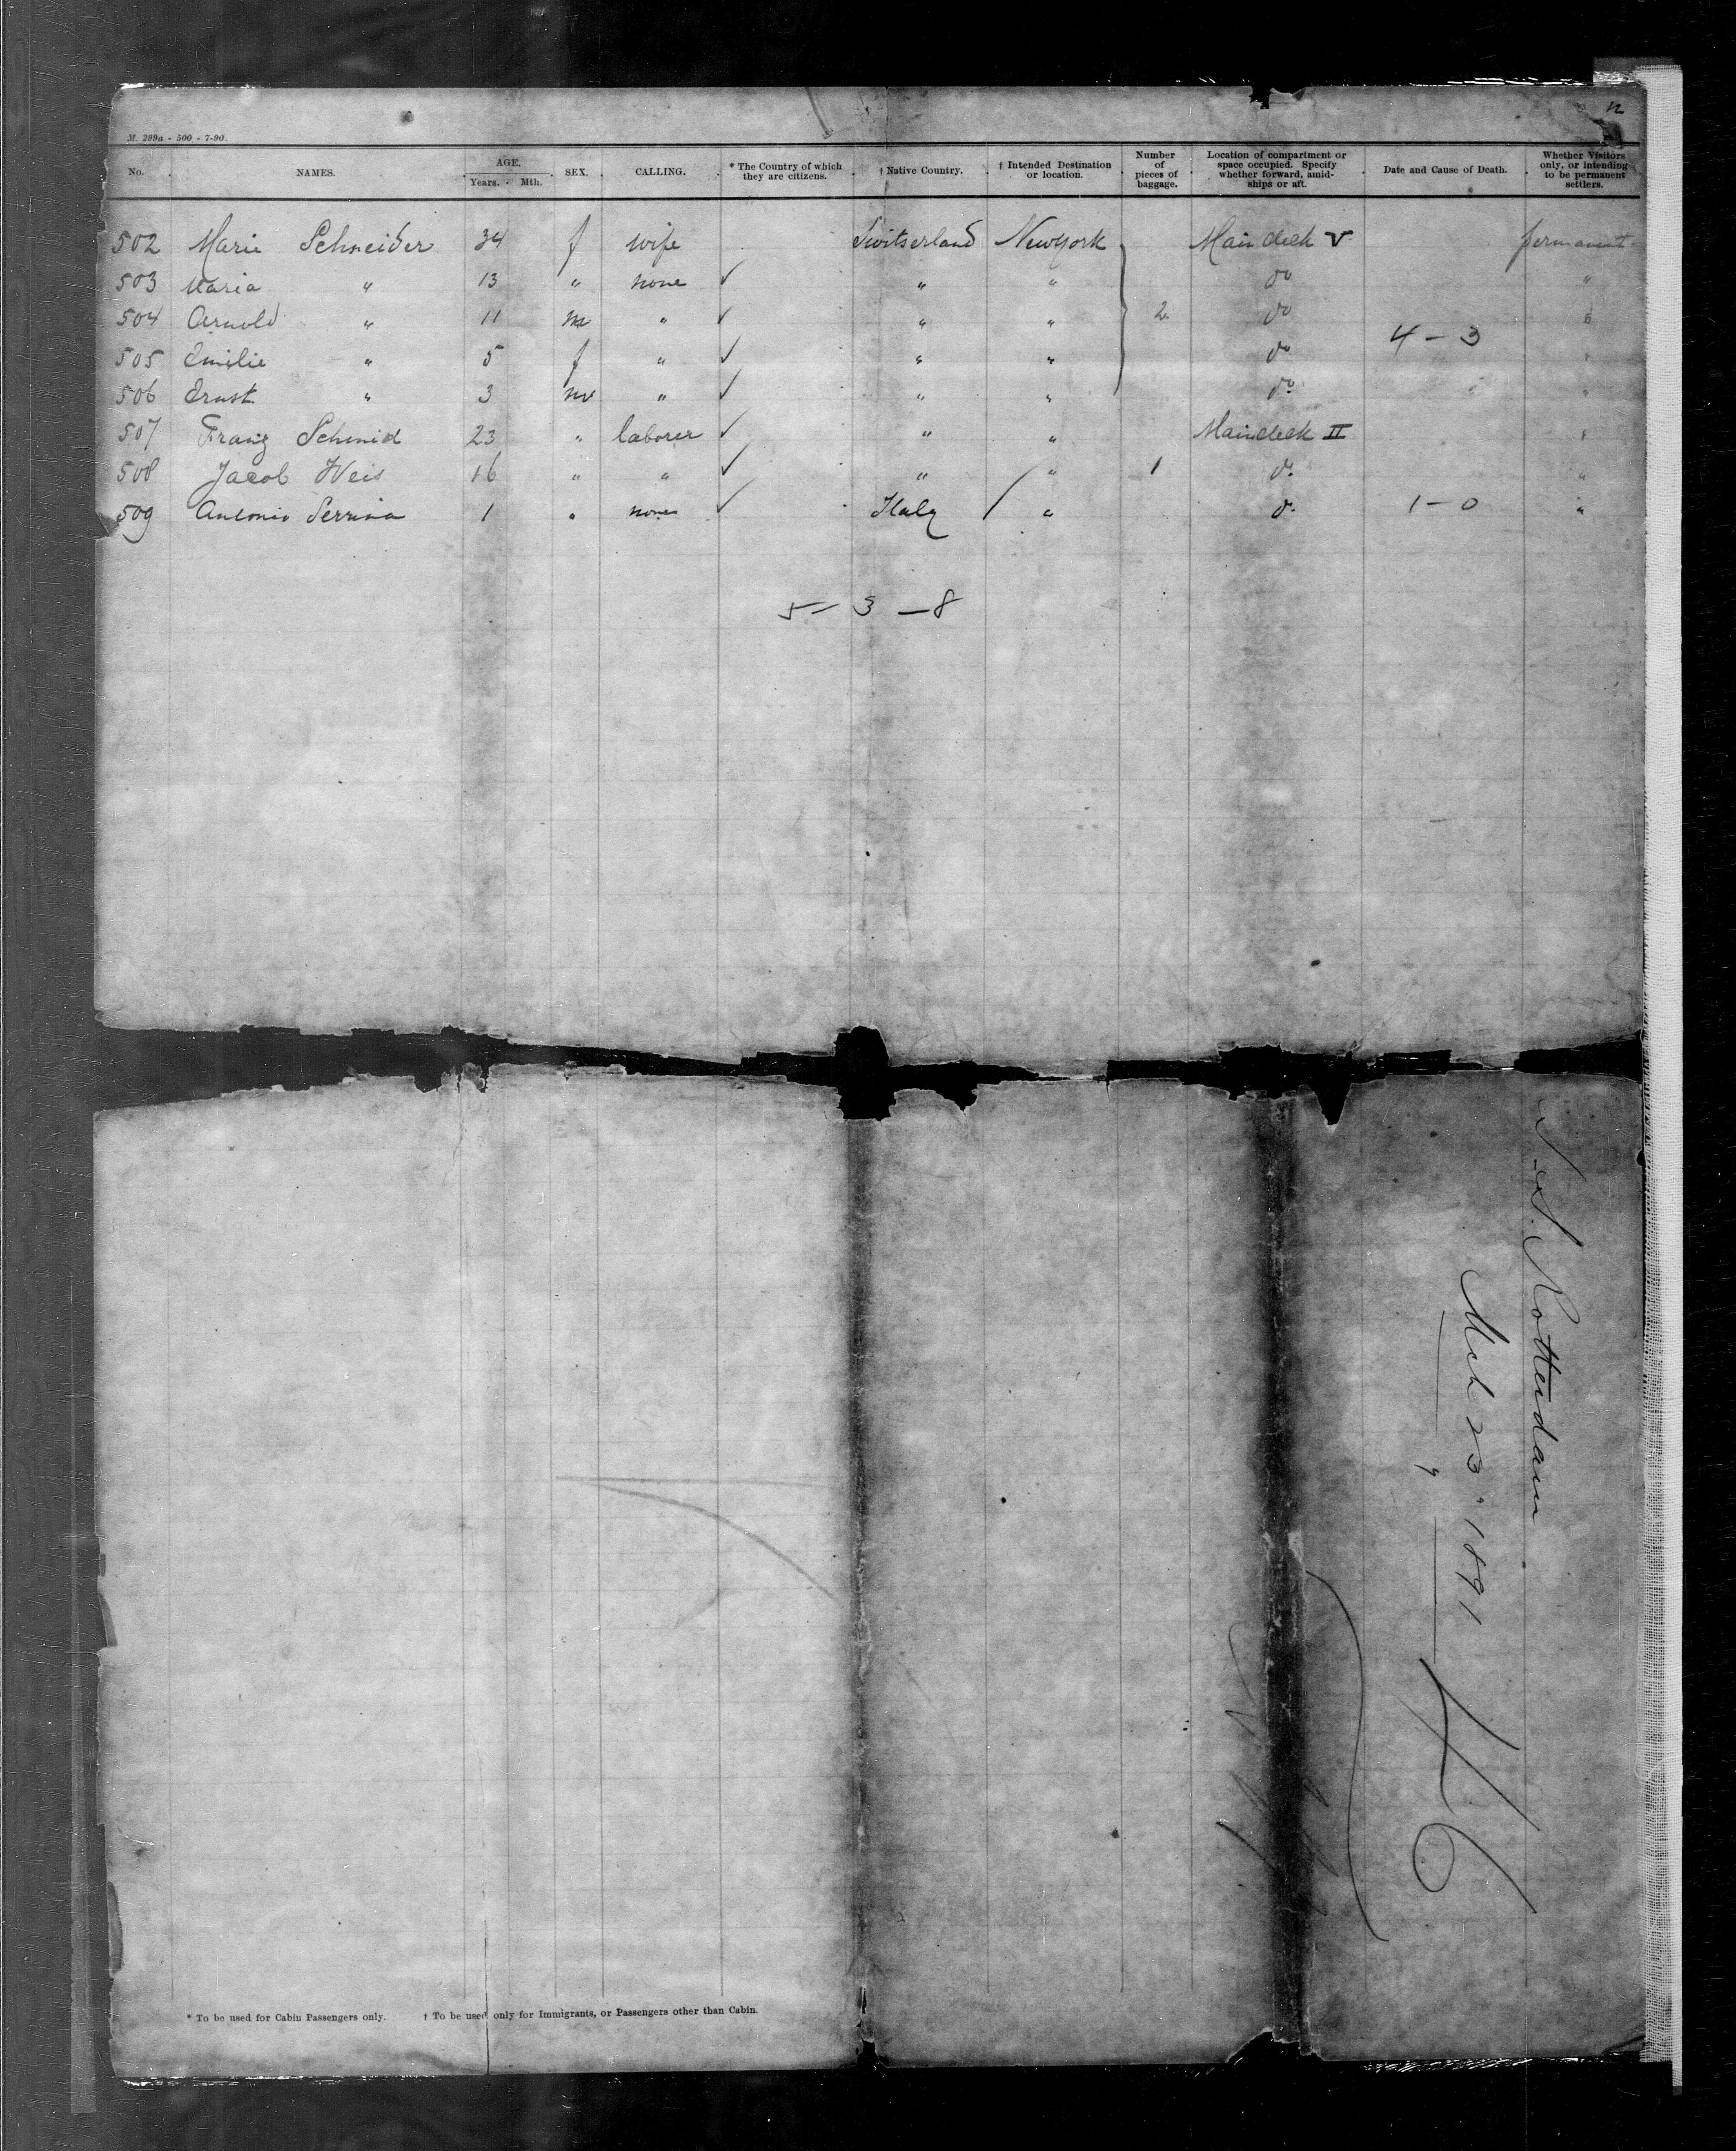 12
M. 299a - 500 - 7-90.
No. NAMES. AGE. Years. Mth. SEX. CALLING. * The Country of which they are citizens. † Native Country. † Intended Destination or location. Number of pieces of baggage. Location of compartment or space occupied. Specify whether forward, amidships or aft. Date and Cause of Death. Whether Visitors only, or intending to be permanent settlers.
502 Marie Schneider 34 f wife Switserland New York Maindeck V permanent
503 Maria " 13 " none ✓ " " do "
504 Arnold " 11 m " ✓ " " 2 do "
4 - 3
505 Emilie " 5 f " ✓ " " do "
506 Ernst " 3 m " ✓ " " do "
507 Franz Schmid 23 " laborer ✓ " " Maindeck II "
508 Jacob Weis 16 " " ✓ " " 1 do "
509 Antonio 1 " none ✓ Italy / " do 1 - 0 "
5 - 3 - 8
S.S. Rotterdam
Mch 23 " 1891
46
* To be used for Cabin Passengers only. † To be used only for Immigrants, or Passengers other than Cabin.